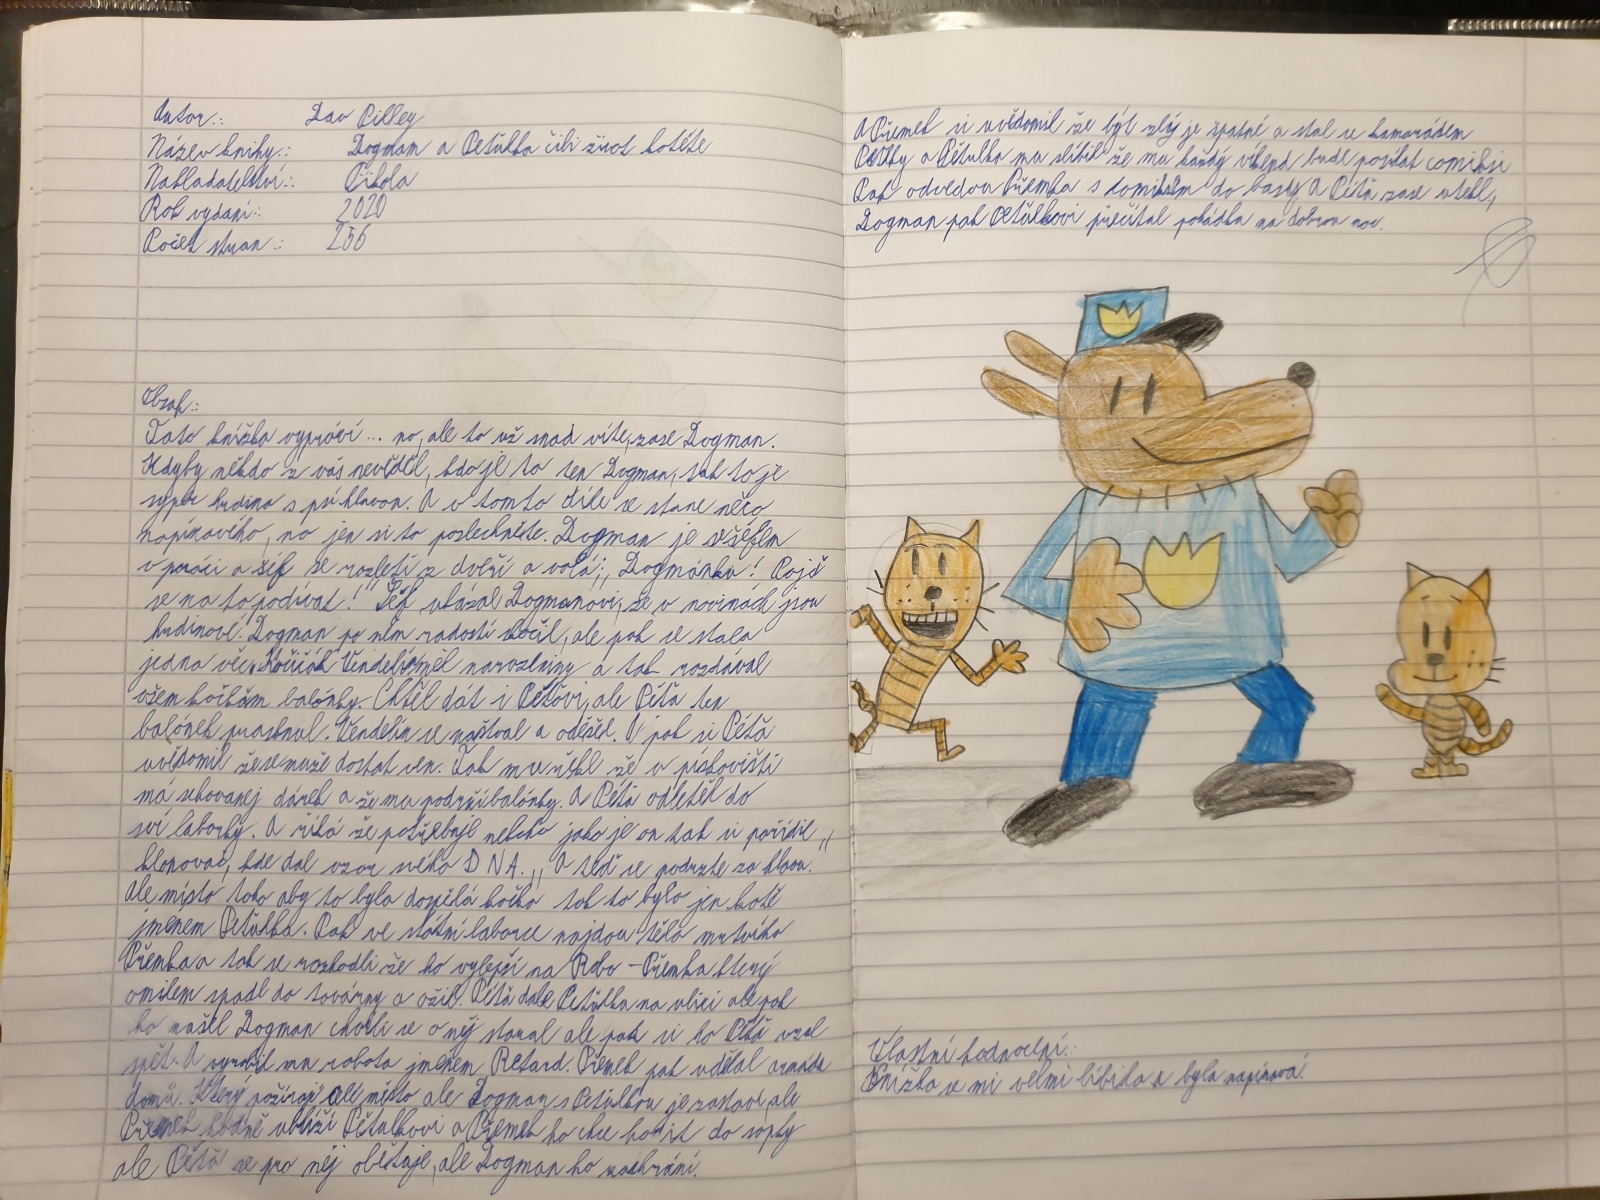 Autor.: Dav Pilkey
Název knihy.: Dogman a Petůlka čili život kotěte
Nakladatelství.: Pikola
Rok vydaní.: 2020
Počet stran.: 256
Obsah.:
Tato knížka vypráví... no, ale to už snad víte, zase Dogman.
Kdyby někdo z vás nevěděl, kdo je to ten Dogman, tak to je
super hrdina s psí hlavou. A v tomto díle se stane něco
napínavého, no jen si to poslechněte. Dogman je s šéfem
v práci a šéf se rozletí z dveří a volá;,, Dogmánku! Pojď
se na to podívat!" Šéf ukázal Dogmanovi, že v novinách jsou
hrdinové. Dogman po něm radostí skočil, ale pak se stala
jedna věc. Kočičák Vendelín měl narozeniny a tak rozdával
všem kočkám balónky. Chtěl dát i Péťovi, ale Péťa ten
balónek prasknul. Vendelín se naštval a odešel. A pak si Péťa
uvědomil že se muže dostat ven. Tak mu řekl že v pískovišti
má schovanej dárek a že mu podrží balónky. A Péťa odletěl do
sví laborky. A říká že potřebuje někoho jako je on tak si pořídil ,,
klonovač, kde dal vzor svého DNA.,, A teď se podrzte za hlavu.
Ale místo toho aby to byla dospělá kočka tak to bylo jen kotě
jménem Petůlka. Pak ve státní laborce najdou tělo mrtvího
Přemka a tak se rozhodli že ho vylepší na Robo - Přemka který
omilem spadl do továrny a ožil. Péťa dale Petůlka na ulici ale pak
ho našel Dogman chtěli se o něj starat ale pak si ho Péťa vzal
spět. A vyrobil mu robota jménem Retard. Přemek pak udělal armádu
domů. Který požírají celé město ale Dogman s Petůlkou je zastaví, ale
Přemek hodně ublíží Pětulkovi a Přemek ho chce hodit do sopky
ale Péťa se pro něj obětuje, ale Dogman ho zachrání.
A Přemek si uvědomil že být zlý je špatné a stal se kamarádem
Petlky a Pětulka mu slíbil že mu každý víkend bude posílat comiksi
Pak odvedou Přemka s domikem do basy. A Péťa zase utekl,
Dogman pak Petůlkovi přečítal pohádku na dobrou noc.
Vlastní hodnocení.:
Knížka se mi velmi líbila a byla napínavá.